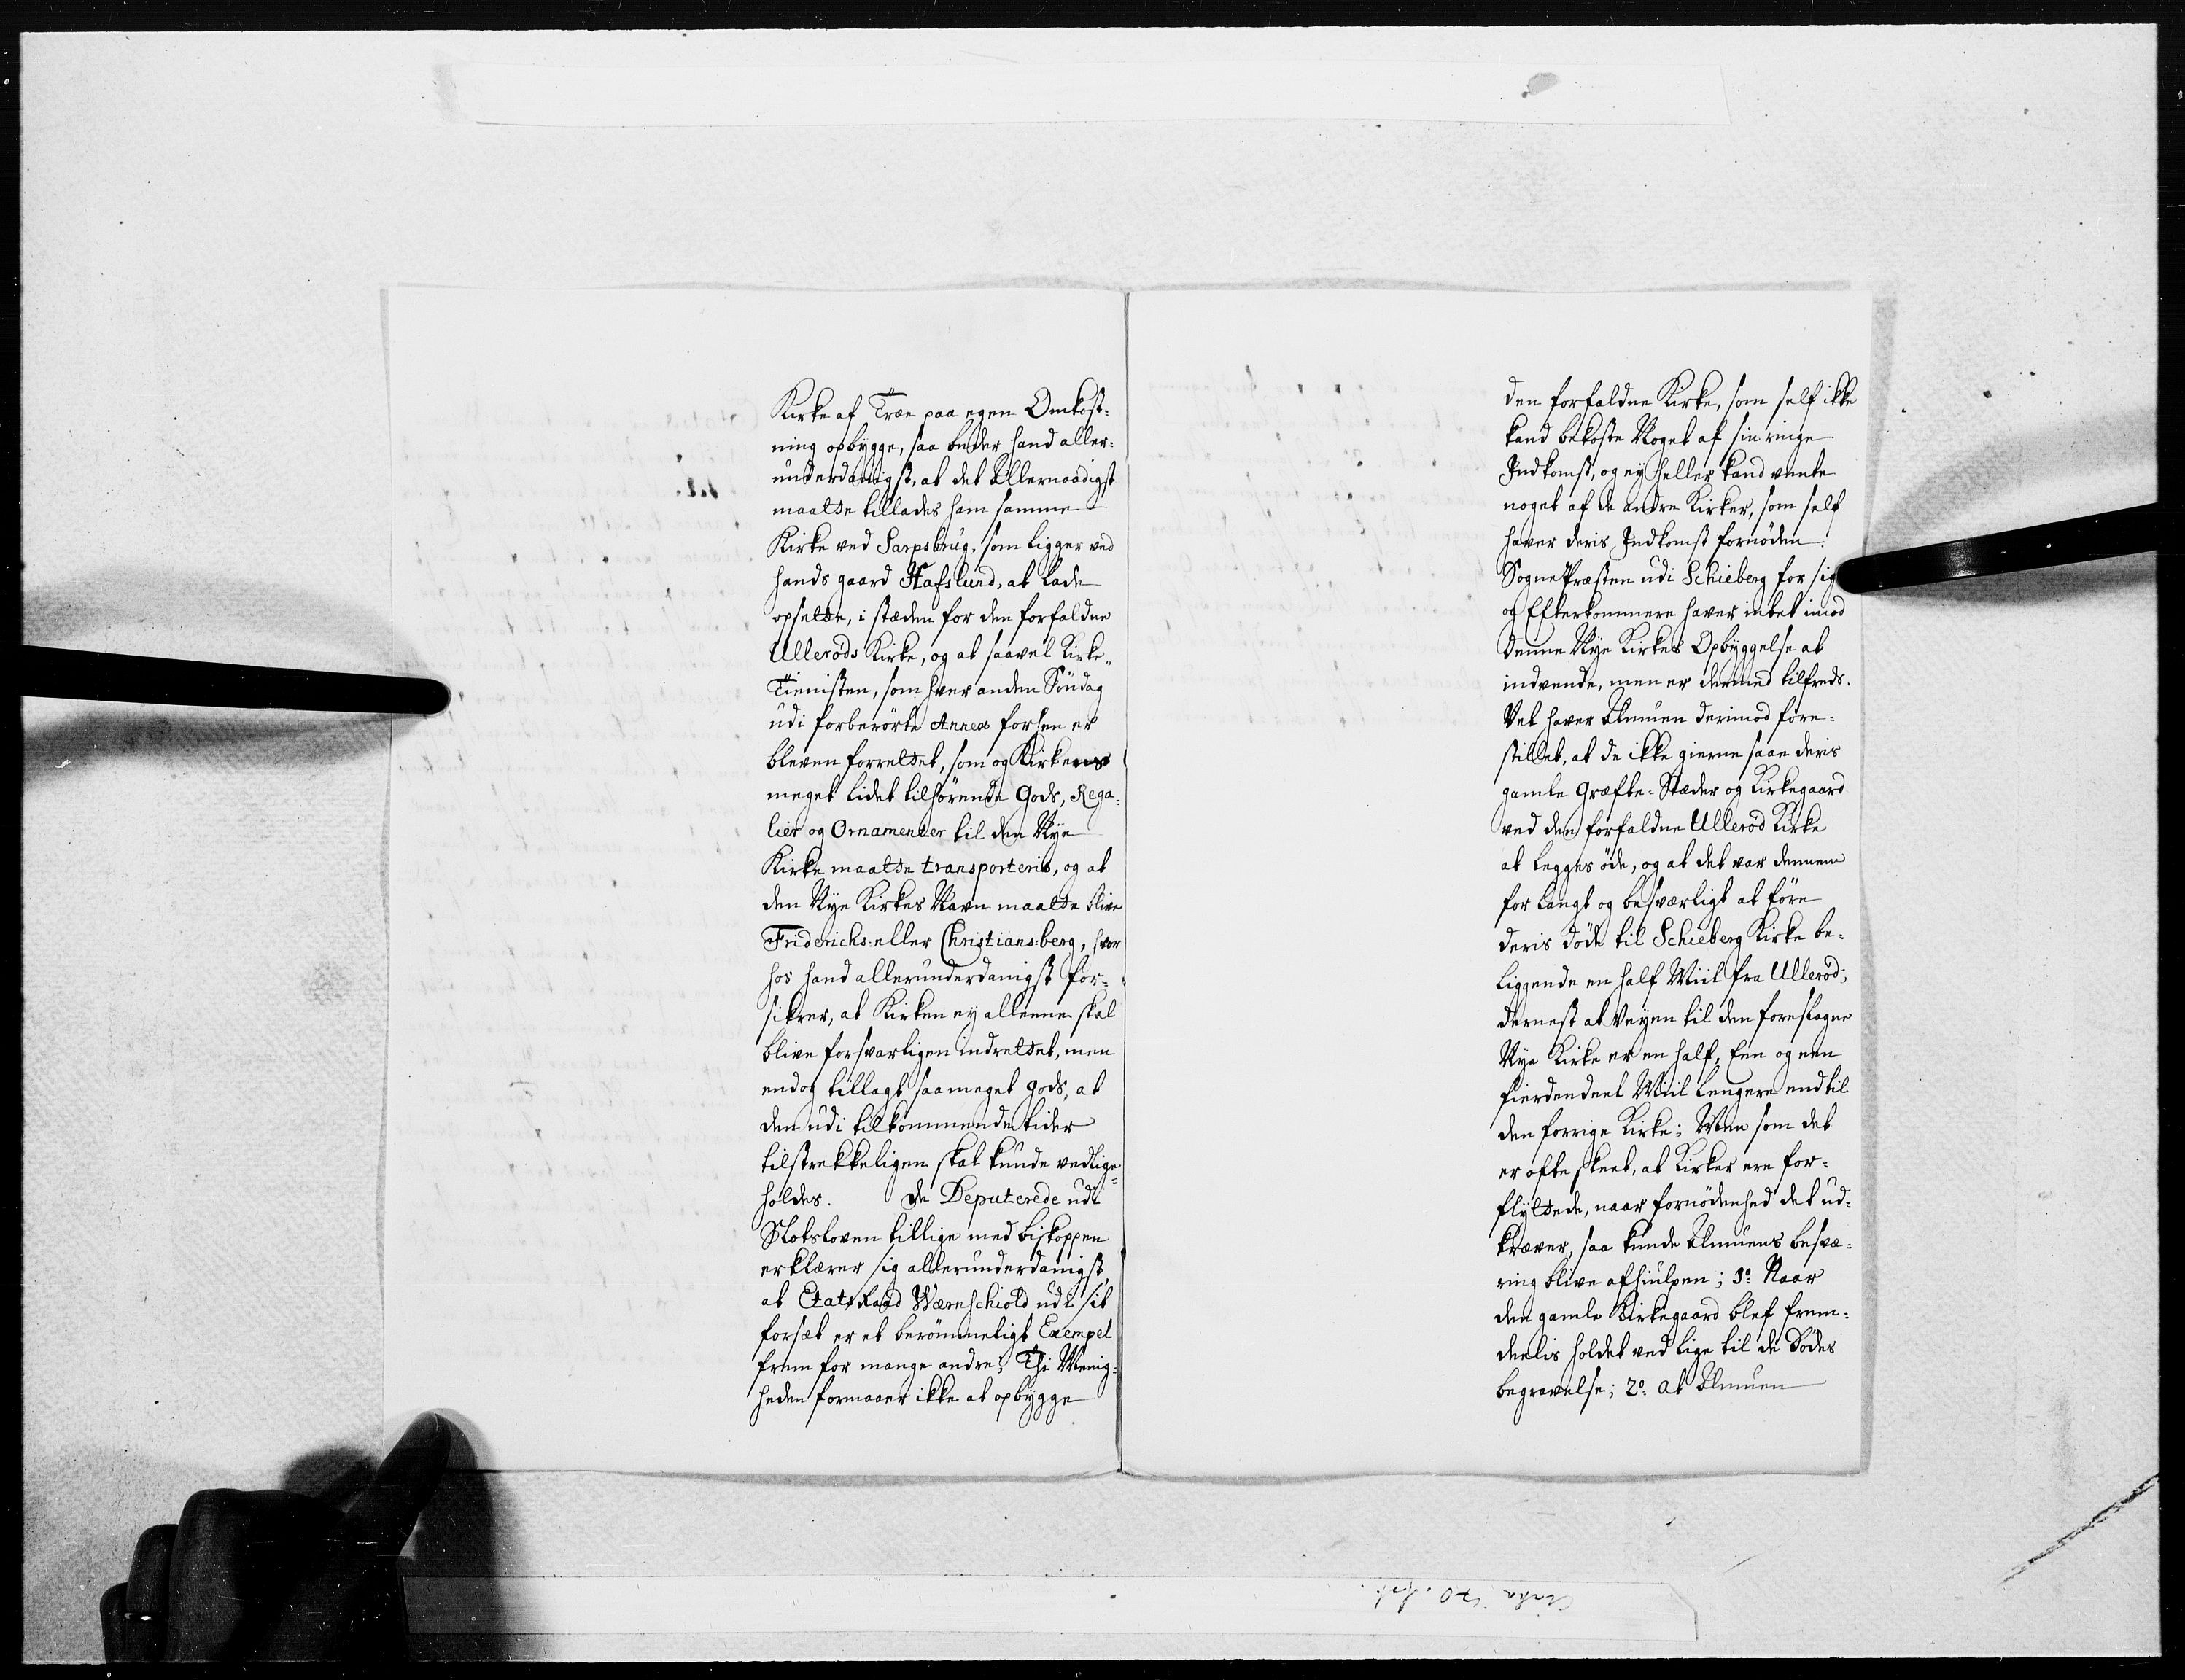 Kirke af Træe paa egen Omkost-
ning opbygge, saa beder hand aller-
underdanigst, at det Allernaadigst
maatte tillades ham samme
Kirke ved Sarpsbrug, som ligger ved
hands gaard Hafslund, at lade
opsette, i stæden for den forfaldne
Ullerøds Kirke, og at saavel Kirke-
Tienisten, som hver anden Søndag
udi forberørte Annex forhen er
bleven forrettet, som og Kirkens
meget lidet tilhørende Gods, Rega-
lier og Ornamenter til den Nye
Kirke maatte transporteris, og at
den Nye Kirkes Navn maatte blive
Friderichs- eller Christians-berg, hvor
hos hand allerunderdanigst for-
sikrer, at Kirken ey alleene skal
blive forsvarligen indrettet, men
endog tillagt saameget gods, at
den udi tilkommende tider
tilstrekkeligen skal kunde vedlige-
holdes. De Deputerede udi
Slotsloven tillige med biskoppen
erklærer sig allerunderdanigst,
at Etats Raad Wærnschiold udi sit
forsæt er et berømmeligt Exempel
frem for mange andre; Thi Menig-
heden formaaer ikke at opbygge
den forfaldne Kirke, som self ikke
kand bekoste Noget af sin ringe
Indkomst, og ey heller kand vente
noget af de andre Kirker, som self
haver deris Indkomst fornøden.
SognePræsten udi Schieberg for sig
og Efterkommere haver intet imod
denne Nye Kirkes Opbyggelse at
indvende, men er dermed tilfreds.
Vel haver Almuen derimod fore-
stillet, at de ikke gierne saae deris
gamle Græfte-Stæder og Kirkegaard
ved den forfaldne Ullerød Kirke
at legges øde, og at det var dennem
for langt og besværligt at føre
deris døde til Schieberg Kirke be-
liggende en half Miil fra Ullerød;
dernest at Veyen til den foreslagne
Nye Kirke er en half, Een og een
fierdendeel Miil lengere end til
den forrige Kirke; Men som det
er ofte skeet, at Kirker ere for-
flyttede, naar fornødenhed det ud-
kræver, saa kunde Almuens besvæ-
ring blive afhiulpen; 1º. Naar
den gamle Kirkegaard blef frem-
deelis holdet ved lige til de Dødes
begravelse; 2º. at Almuen